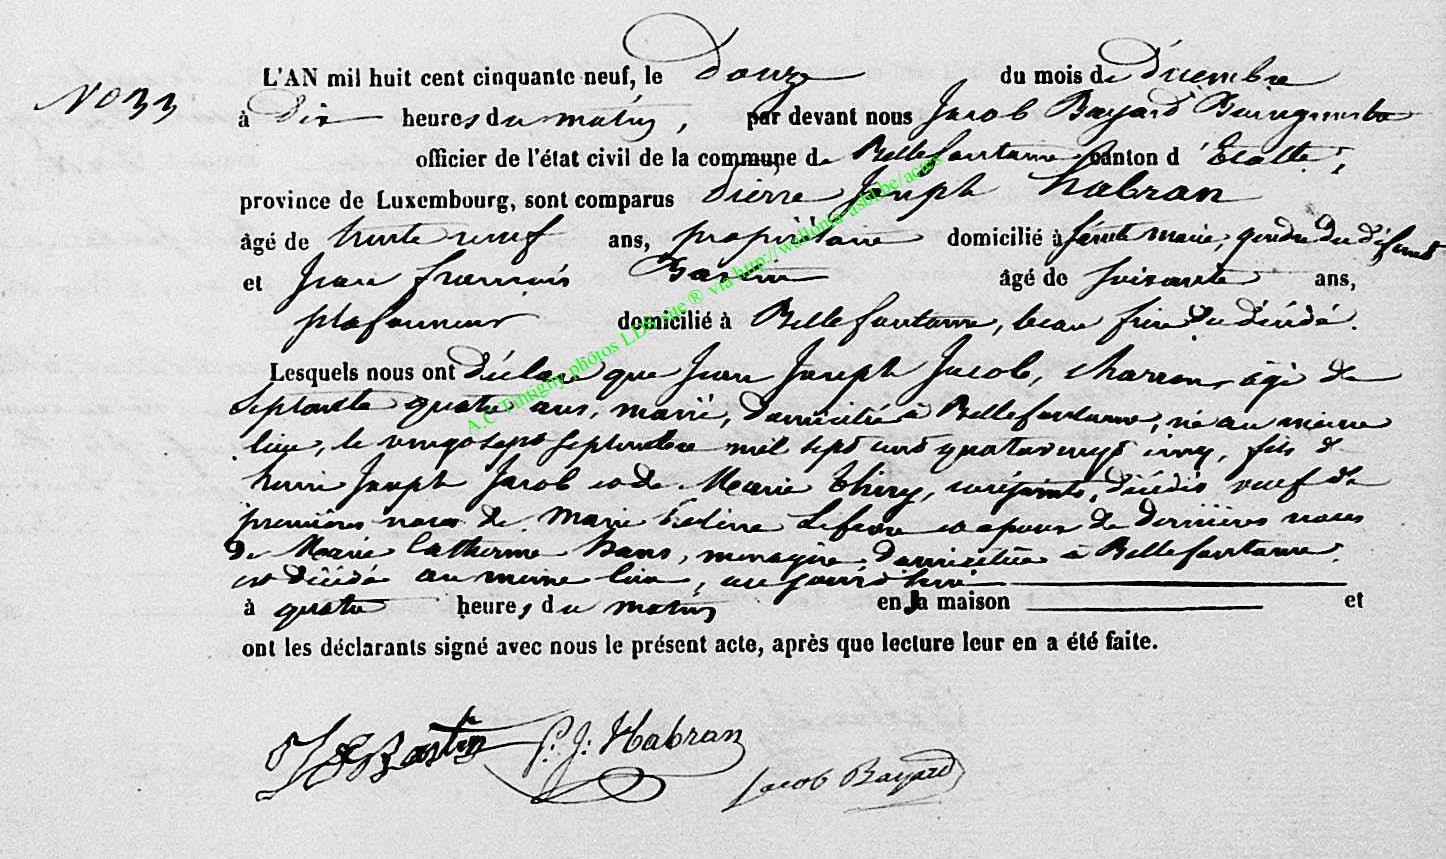 L'AN mil huit cent cinquante neuf, le Douze du mois de décembre
No 33
à Dix heures du matin, par devant nous Jacob Bayard Bourgmestre
officier de l'état civil de la commune de Bellefontaine canton d'Etalle,
province de Luxembourg, sont comparus Pierre Joseph habran
âgé de trente neuf ans, propriétaire domicilié à Sainte marie, gendre du défunt
et Jean françois Bastin âgé de soixante ans,
plafonneur domicilié à Bellefontaine, beau frère du décédé.
Lesquels nous ont déclaré que Jean Joseph Jacob, charron, agé de
Septante quatre ans, marié, Domicilié à Bellefontaine, né au même
lieu, le vingt sept Septembre mil sept cent quatrevingt cinq, fils de
henri Joseph Jacob et de Marie Thiry, conjoints, décédés veuf de
premières noces de Marie Lefevre et epoux de dernières noces
de Marie Catherine hans, menagère, Domiciliée à Bellefontaine.
est décédé au meme lieu, aujourd'hui
à quatre heures du matin en sa maison et
ont les déclarants signé avec nous le présent acte, après que lecture leur en a été faite.
Bastin P. J. Habran Jacob Bayard
A.C Tintigny photos LDS site ® via http://wallonia-asbl.be/actes